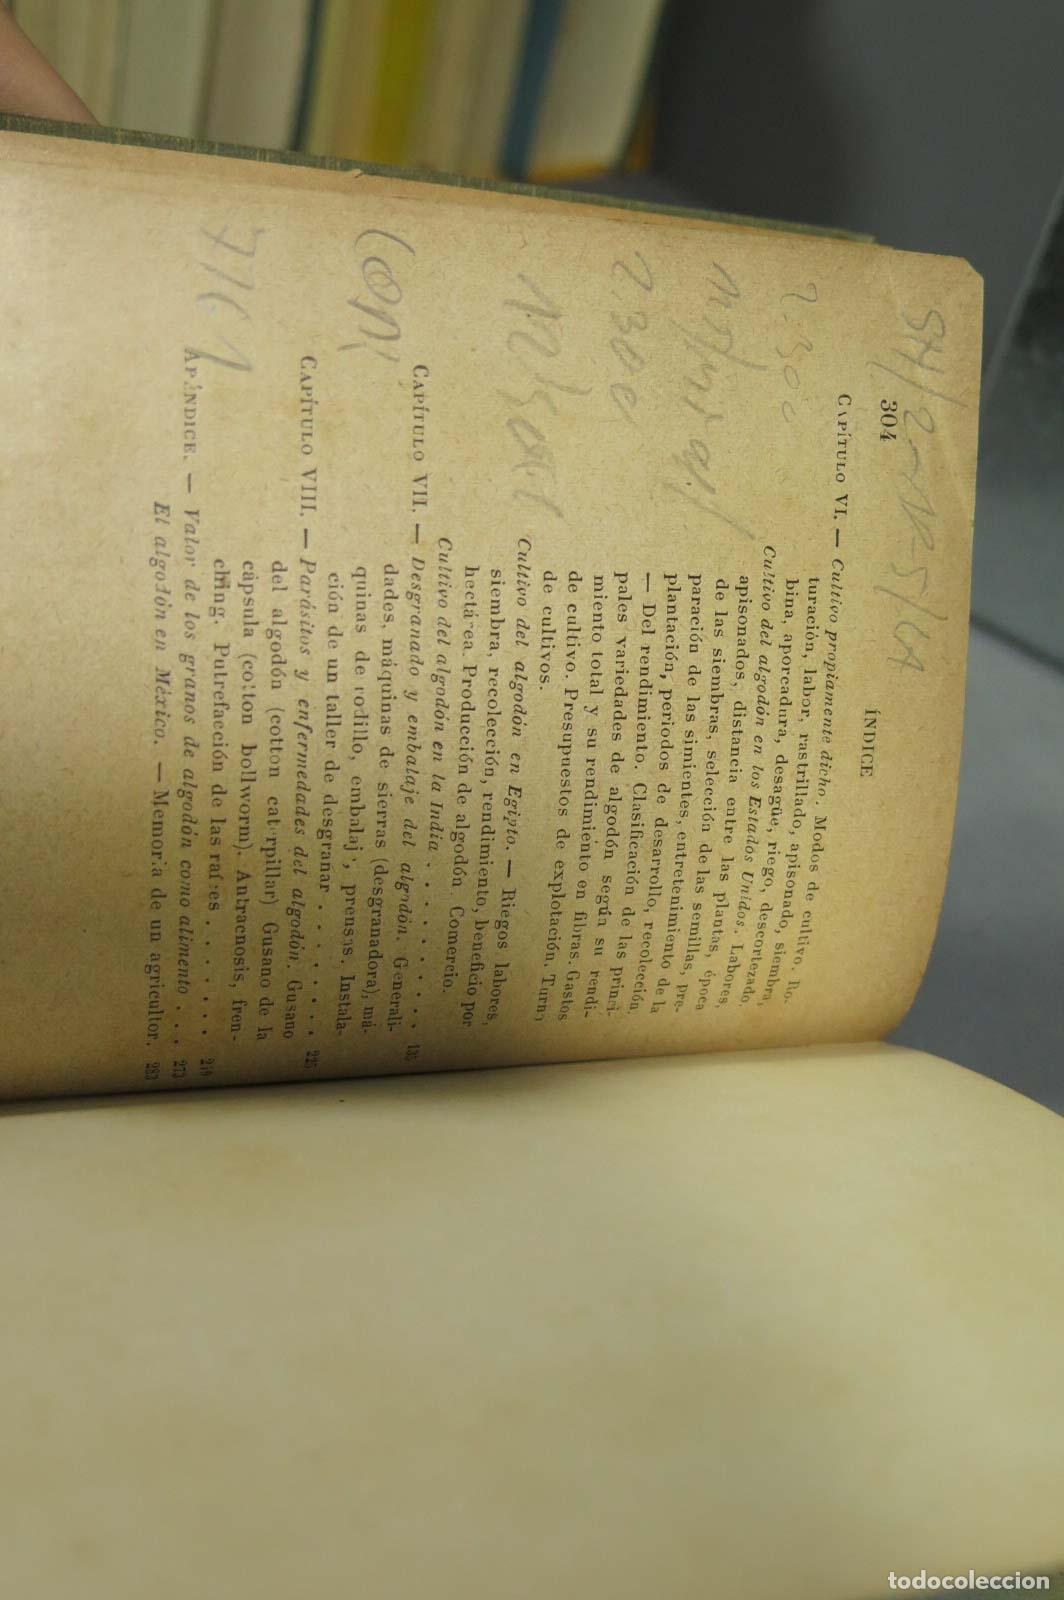 304
ÍNDICE
CAPÍTULO VI. — Cultivo propiamente dicho. Modos de cultivo. Ro-
turación, labor, rastrillado, apisonado, siembra,
bina, aporcadura, desagüe, riego, descortezado,
Cultivo del algodón en los Estados Unidos. Labores,
apisonados, distancia entre las plantas, época
de las siembras, selección de las semillas, pre-
paración de las simientes, entretenimiento de la
plantación, periodos de desarrollo, recolección,
— Del rendimiento. Clasificación de las princi-
pales variedades de algodón según su rendi-
miento total y su rendimiento en fibras. Gastos
de cultivo. Presupuestos de explotación. Turno
de cultivos.
Cultivo del algodón en Egipto. — Riegos labores,
siembra, recolección, rendimiento, beneficio por
hectárea. Producción de algodón. Comercio.
Cultivo del algodón en la India . . . . . . . . 135
CAPÍTULO VII. — Desgranado y embalaje del algodón. Generali-
dades, máquinas de sierras (desgranadora), má-
quinas de rodillo, embalaje, prensas. Instala-
ción de un taller de desgranar . . . . . . . . 225
CAPÍTULO VIII. — Parásitos y enfermedades del algodón. Gusano
del algodón (cotton caterpillar) Gusano de la
cápsula (cotton bollworm). Antracnosis, fren-
ching. Putrefacción de las raíces . . . . . . 219
APÉNDICE. — Valor de los granos de algodón como alimento . . . 273
El algodón en México. — Memoria de un agricultor. 283
2.300
776.1
todocoleccion